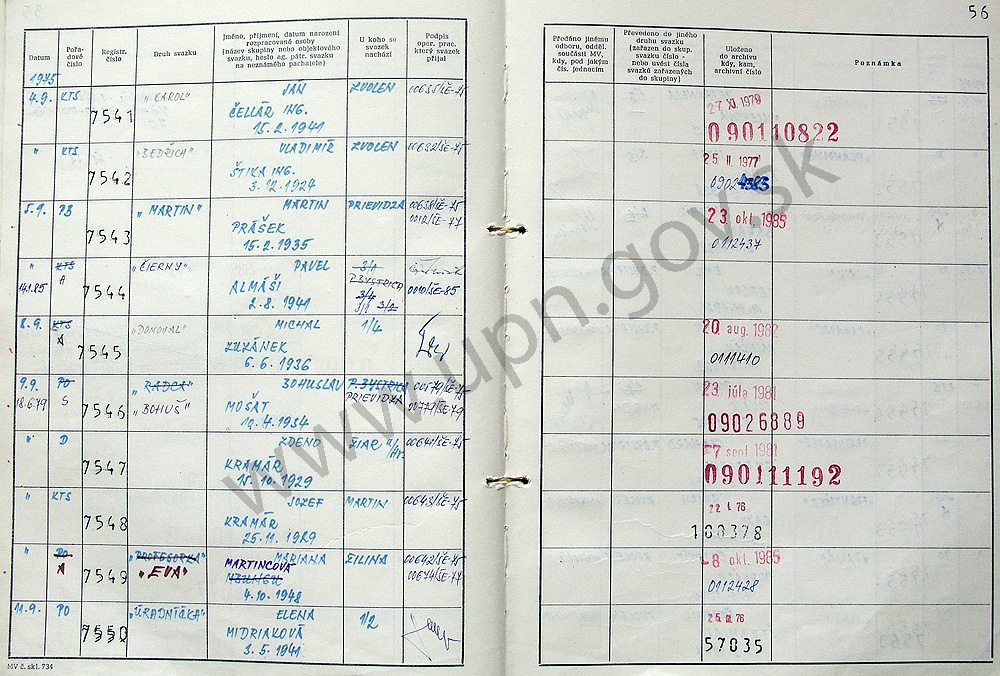 56
Datum
Pořadové číslo
Registr. číslo
Druh svazku
Jméno, příjmení, datum narození rozpracované osoby (název skupiny nebo objektového svazku, heslo ag. pátr. svazku na neznámého pachatele)
U koho se svazek nachází
Podpis oper. prac. který svazek přijal
Předáno jinému odboru, odděl. součásti MV, kdy, pod jakým čís. jednacím
Převedeno do jiného druhu svazku (zařazen do skup. svazku číslo - nebo uvést čísla svazků zařazených do skupiny)
Uloženo do archívu kdy, kam, archívní číslo
Poznámka
1975
4.9. KTS 7541 „KAROL" JAN ZVOLEN 00635/ŠE-75
ČELLÁR ING.
15.2.1941
27 XI. 1979
090110822
" KTS 7542 „BEDRICH" VLADIMÍR ZVOLEN 00632/ŠE-75
ŠTIKA ING.
3.12.1924
25 II. 1977
5.9. PB 7543 „MARTIN" MARTIN PRIEVIDZA 00638/ŠE-75
0012/ŠE-77
PRÁŠEK
15.2.1935
23. okt. 1985
0112437
" KTS 7544 „ČIERNY" PAVEL 3/1
14.1.85 A ALMÁŠI P.BYSTRICA 0010/ŠE-85
2.8.1941 3/4
3/2
8.9. KTS 7545 „DONOVAL" MICHAL 1/4
A
6.6.1936
20 aug. 1982
0111410
9.9. PO 7546 „RADCA" BOHUSLAV P.BYSTRICA 00579/ŠE-75
18.6.79 S „BOHUŠ" MOŠAT PRIEVIDZA 00777/ŠE-79
4.1934
23. júla 1981
09026889
" D 7547 ZDENO ŽIAR n/Hr. 00641/ŠE-75
KRAMÁR
15.10.1929
sept 1981
090111192
" KTS 7548 JOZEF MARTIN 00643/ŠE-75
KRAMÁR
25.11.1929
22 I. 76
100378
" PO 7549 „PROFESORKA" MARIANA ŽILINA 00642/ŠE-75
A „EVA" MARTINCOVÁ 00654/ŠE-77
4.10.1948
-8 okt. 1985
0112428
11.9. PO 7550 „ÚRADNÍČKA" ELENA 1/2
MIDRIAKOVÁ
3.5.1941
25. III. 76
57835
MV č. skl. 734
www.upn.gov.sk